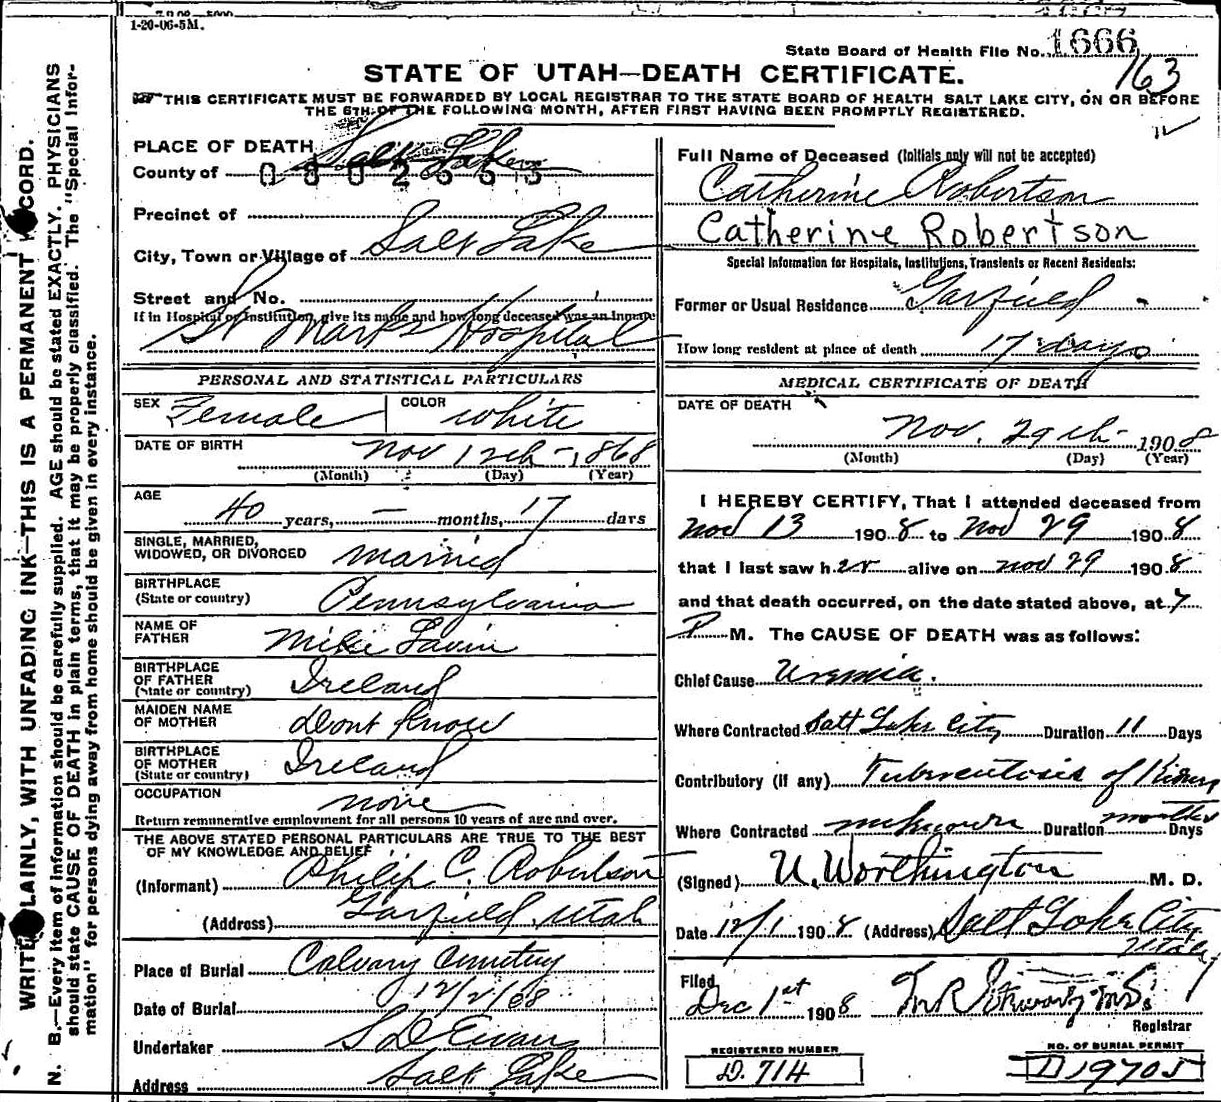 1-20-06-5M.
State Board of Health File No. 1666
163
STATE OF UTAH—DEATH CERTIFICATE.
THIS CERTIFICATE MUST BE FORWARDED BY LOCAL REGISTRAR TO THE STATE BOARD OF HEALTH SALT LAKE CITY, ON OR BEFORE
THE 6TH OF THE FOLLOWING MONTH, AFTER FIRST HAVING BEEN PROMPTLY REGISTERED.
WRITE PLAINLY, WITH UNFADING INK—THIS IS A PERMANENT RECORD.
N. B.—Every item of information should be carefully supplied. AGE should be stated EXACTLY. PHYSICIANS
should state CAUSE OF DEATH in plain terms, that it may be properly classified. The "Special Infor-
mation" for persons dying away from home should be given in every instance.
PLACE OF DEATH
County of Salt Lake
Precinct of
City, Town or Village of Salt Lake
Street and No.
If in Hospital or Institution, give its name and how long deceased was an inmate
St Marks Hospital
PERSONAL AND STATISTICAL PARTICULARS
SEX Female COLOR white
DATE OF BIRTH Nov 12th - 1868
(Month) (Day) (Year)
AGE
40 years, — months, 17 days
SINGLE, MARRIED,
WIDOWED, OR DIVORCED married
BIRTHPLACE
(State or country) Pennsylvania
NAME OF
FATHER Mike Lavin
BIRTHPLACE
OF FATHER
(State or country) Ireland
MAIDEN NAME
OF MOTHER dont know
BIRTHPLACE
OF MOTHER
(State or country) Ireland
OCCUPATION none
Return remunerative employment for all persons 10 years of age and over.
THE ABOVE STATED PERSONAL PARTICULARS ARE TRUE TO THE BEST
OF MY KNOWLEDGE AND BELIEF
(Informant) Philip C. Robertson
(Address) Garfield, Utah
Place of Burial Calvary Cemetery
Date of Burial 12/2/08
Undertaker S D Evans
Address Salt Lake
Full Name of Deceased (Initials only will not be accepted)
Catherine Robertson
Catherine Robertson
Special Information for Hospitals, Institutions, Transients or Recent Residents:
Former or Usual Residence Garfield
How long resident at place of death 17 days
MEDICAL CERTIFICATE OF DEATH
DATE OF DEATH
Nov. 29th - 1908
(Month) (Day) (Year)
I HEREBY CERTIFY, That I attended deceased from
Nov 13 1908 to Nov 29 1908
that I last saw her alive on Nov 29 1908
and that death occurred, on the date stated above, at 7
P M. The CAUSE OF DEATH was as follows:
Chief Cause Uremia.
Where Contracted Salt Lake City Duration 11 Days
Contributory (if any) Tuberculosis of Kidney
Where Contracted unknown Duration months Days
(Signed) U. Worthington M. D.
Date 12/1 1908 (Address) Salt Lake City
Utah
Filed
Dec 1st 1908 M.D.
Registrar
REGISTERED NUMBER
D. 714
NO. OF BURIAL PERMIT
D 19705